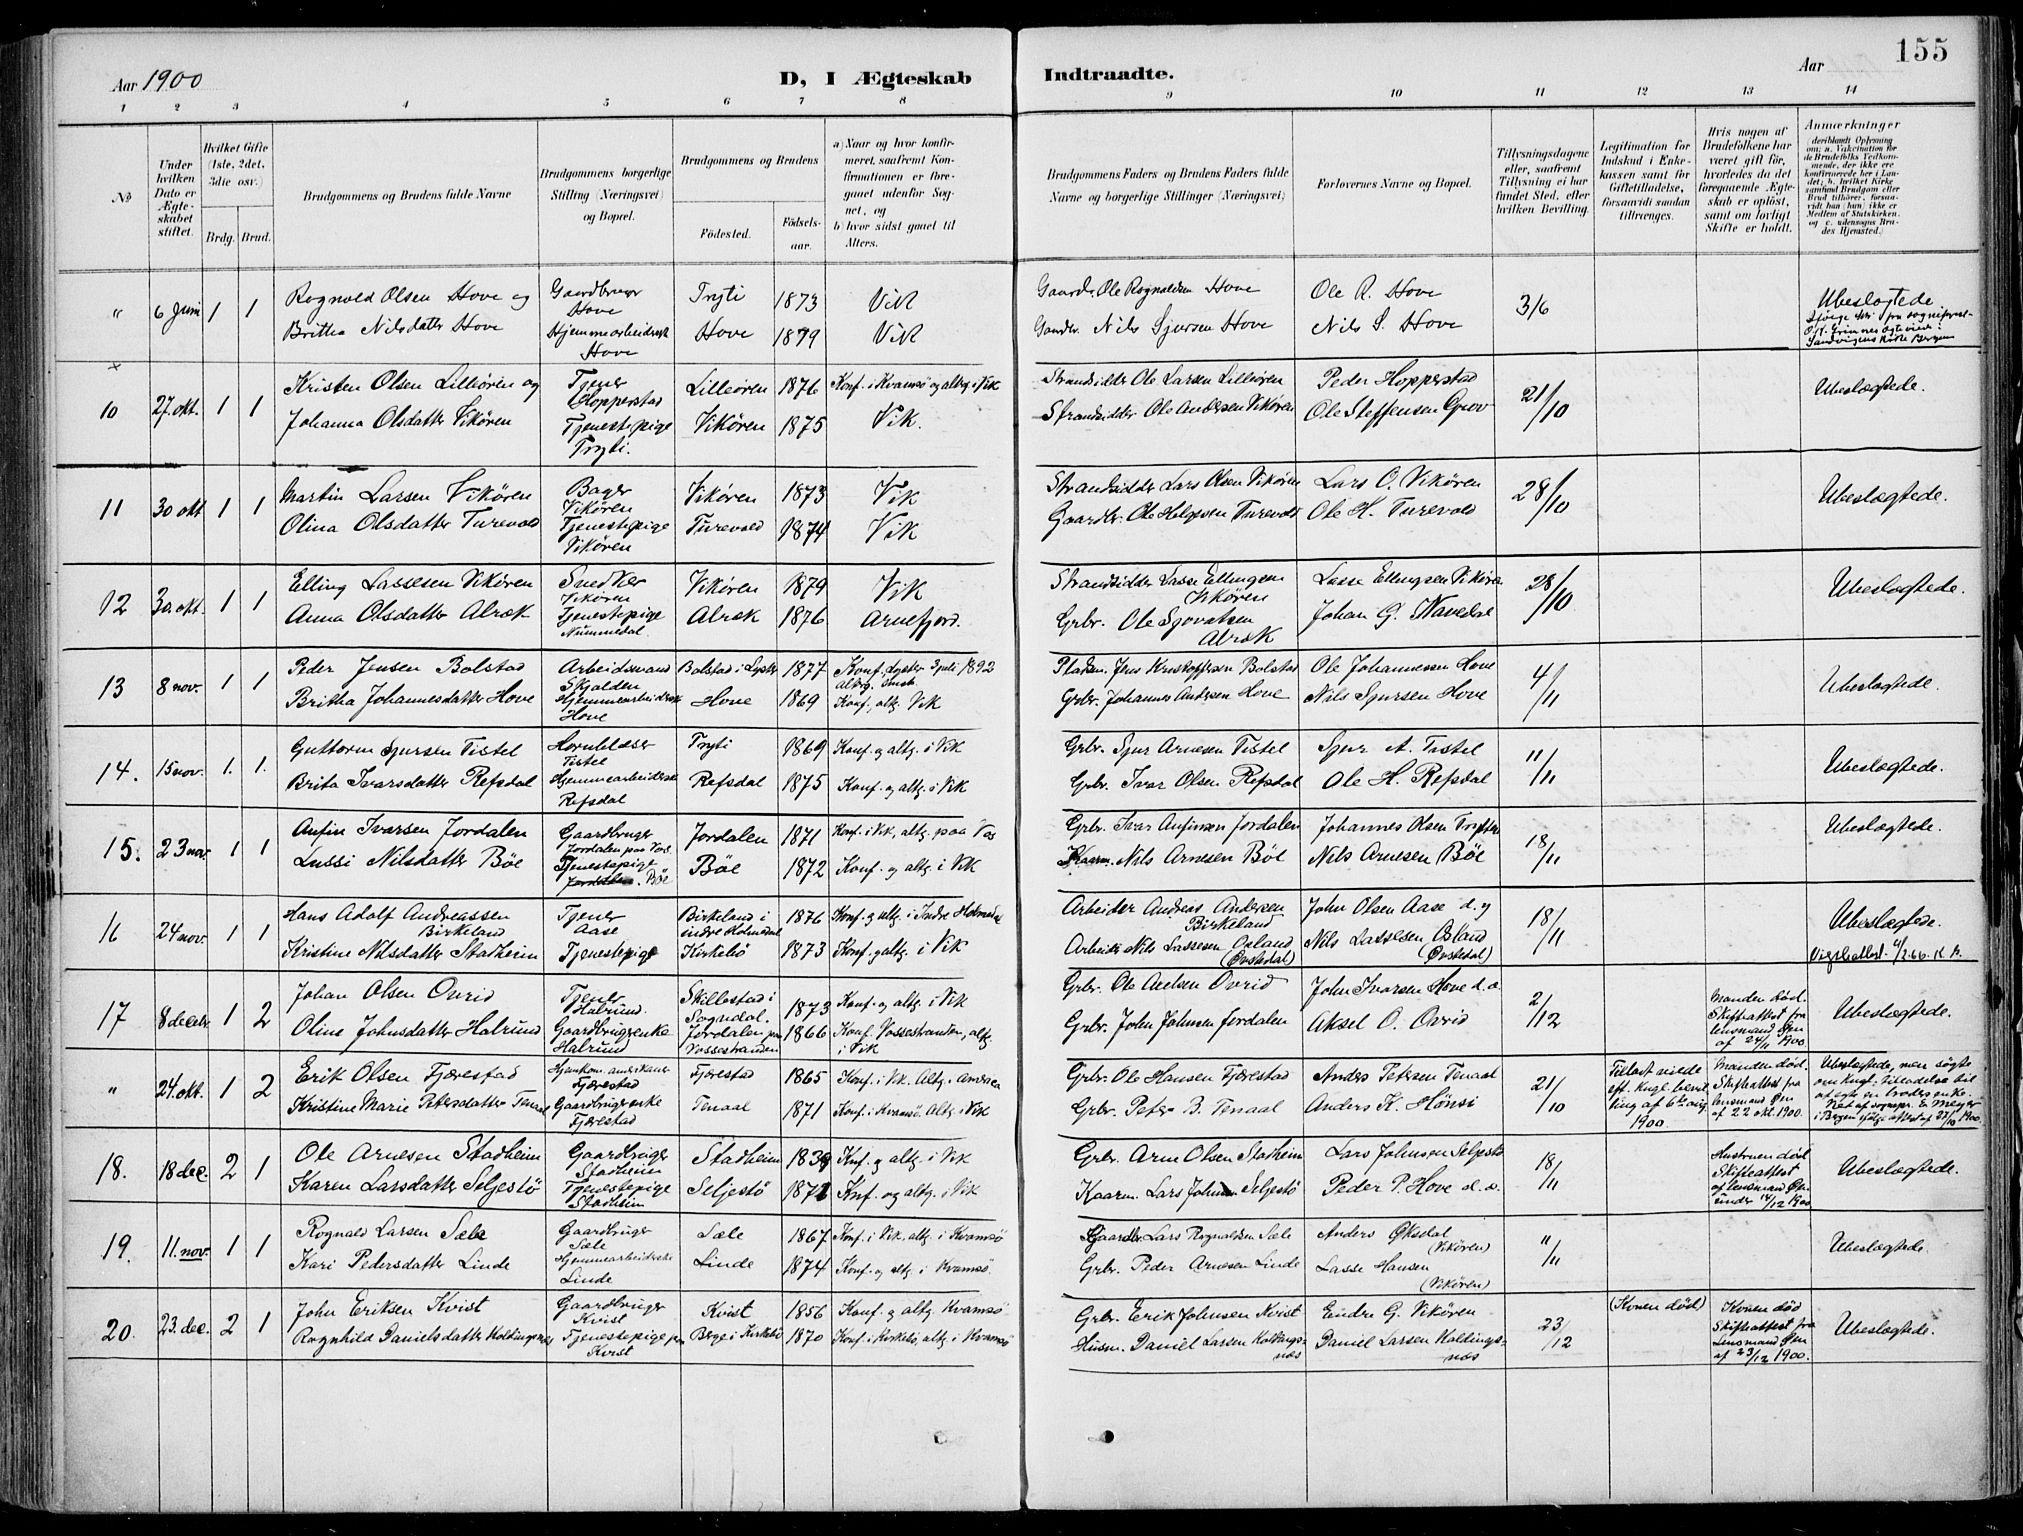 155
Aar 1900
D, I Ægteskab
Indtraadte.
Aar
1 2 3 4 5 6 7 8 9 10 11 12 13 14
№
Under hvilken Dato er Ægteskabet stiftet.
Hvilket Gifte (1ste, 2det, 3die osv.)
Brdg. Brud.
Brudgommens og Brudens fulde Navne
Brudgommens borgerlige Stilling (Næringsvei) og Bopæl.
Brudgommens og Brudens
Fødested.
Fødsels-aar.
a) Naar og hvor konfirmeret, saafremt Konfirmationen er foregaaet udenfor Sognet, og
b) hvor sidst gaaet til Alters.
Brudgommens Faders og Brudens Faders fulde Navne og borgerlige Stillinger (Næringsvei)
Forlovernes Navne og Bopæl.
Tillysningsdagene eller, saafremt Tillysning ei har fundet Sted, efter hvilken Bevilling.
Legitimation for Indskud i Enkekassen samt for Giftetilladelse, forsaavidt saadan tiltrænges.
Hvis nogen af Brudefolkene har været gift før, hvorledes da det foregaaende Ægteskab er opløst, samt om lovligt Skifte er holdt.
Anmærkninger
(deriblandt Oplysning om: a. Vakcination for de Brudefolks Vedkommende, der ikke ere konfirmerede her i Landet; b. hvilket Kirkesamfund Brudgom eller Brud tilhører, forsaavidt han (hun) ikke er Medlem af Statskirken, og c. udensogns Brudes Hjemsted.)
" 6 Juni 1 1 Rognald Olsen Hove og Gaardbruger Hove Tryti 1873 Vik Gaardbr. Ole Rognaldsen Hove Ole R. Hove 3/6 Ubeslægtede
Britha Nilsdatter Hove Hjemmearbeidende Hove Hove 1879 Vik Gaardbr. Nils Sjursen Hove Nils S. Hove
10 27. okt. 1 1 Kristen Olsen Lilleören og Tjener Hopperstad Lilleören 1876 Konf. i Kvamsö og altg. i Vik Strandsidder Ole Larsen Lilleören Peder Hopperstad 21/10 Ubeslægtede.
Johanna Olsdatter Vikören Tjenestepige Tryti. Vikören 1875 Vik. Strandsidder Ole Andersen Vikören Ole Steffensen Grov
11 30 okt 1 1 Martin Larsen Vikören Bager Vikören Vikören 1873 Vik Strandsidder Lars Olsen Vikören Lars O. Vikören 28/10 Ubeslægtede.
Olina Olsdatter Turevold Tjenestepige Vikören Turevold 1874 Vik Gaardbr. Ole Helgesen Turevold Ole H. Turevold
12 30. okt. 1 1 Elling Lassesen Vikören Snedker Vikören Vikören 1879 Vik Strandsidder Lasse Ellingsen Vikören Lasse Ellingsen Vikören 28/10 Ubeslægtede.
Anna Olsdatter Alræk Tjenestepige Nummedal Alræk 1876 Arnefjord. Grbr. Ole Sjovatsen Alræk Johan G. Navedal
13 8 nov. 1 1 Peder Jensen Bolstad Arbeidsmand Skjolden Bolstad i Lyster 1877 Konf. Lyster 3 juli 1892 altg. Pladsm. Jens Kristoffersen Bolstad Ole Johannessen Hove 4/11 Ubeslægtede.
Britha Johannesdatter Hove Hjemmearbeidende Hove Hove 1869 Konf., altg. Vik Grbr. Johannes Andersen Hove Nils Sjursen Hove
14. 15 nov. 1. 1. Guttorm Sjursen Tistel Hornblæser Tistel Tryti 1869 Konf. og altg. i Vik Grbr. Sjur Arnesen Tistel Sjur A. Tistel 11/11 Ubeslægtede.
Brita Ivarsdatter Refsdal Hjemmearbeidende Refsdal Refsdal 1875 Konf. og altg. i Vik Grbr. Ivar Olsen Refsdal Ole H. Refsdal
15. 23 nov. 1 1 Anfin Ivarsen Jordalen Gaardbruger Jordalen paa Vos Jordalen 1871 Konf. i Vik, altg. paa Vos Grbr. Ivar Anfinsen Jordalen Johannes Olsen Tryti 18/11 Ubeslægtede.
Lussi Nilsdatter Böe Tjenestepige Böe Böe 1872 Konf. og altg. i Vik Kaarm. Nils Arnesen Böe Nils Arnesen Böe
16 24 nov. 1 1 Hans Adolf Andreassen Birkeland Tjener Aase Birkeland i indre Holmedal 1876 Konf. og altg. i Indre Holmedal Arbeider Andreas Andersen Birkeland John Olsen Aase d. y 18/11 Ubeslægtede.
Kristine Nilsdatter Stadheim Tjenestepige Kirkebö 1873 Konf. og altg. i Vik Arbeider Nils Lassesen Osland (Övstedal) Nils Lassesen Osland (Övstedal) Vigselattest 4/2.66. K. B.
17 8 decbr. 1 2 Johan Olsen Ovrid Tjener Halrund. Skillestad i Sogndal. 1873 Konf. og altg. i Vik Grbr. Ole Axelsen Ovrid John Ivarsen Hove d. æ 2/12 Manden död. Skifteattest fra lensmand Øen af 24/11 1900 Ubeslægtede.
Olina Johnsdatter Halrund Gaardbrugerenke Halrund Jordalen paa Vossestranden 1866 Konf. Vossestranden, altg. i Vik Grbr. John Johnsen Jordalen Aksel O. Ovrid
" 24. okt. 1 2 Erik Olsen Fjærestad Hjemkom. amerikaner Fjærestad Fjærestad 1865 Konf. i Vik. Altg. i Amerika Grbr. Ole Hansen Fjærestad Anders Petersen Tenaal 21/10 Tillost viede eft. Kngl. bevilling af 6te aug. 1900 Manden död. Skifteattest fra lensmand Øen af 22 okt. 1900. Ubeslægtede, men sögte om Kngl. Tilladelse til at egte en broders enke.
Kristine Marie Petersdatter Tenaal Gaardbrugerenke Fjærestad Tenaal 1871 Konf. i Kvamsö. Altg. i Vik Grbr. Peter B. Tenaal Anders K. Hönsi
18. 18 dec. 2 1 Ole Arnesen Stadheim Gaardbruger Stadheim Stadheim 1839 Knf. og altg. i Vik Grbr. Arne Olsen Stadheim Lars Johnsen Seljestö 18/11 Hustruen död Skifteattest af lensmand Øen under 14/12 1900 Ubeslægtede.
Karen Larsdatter Seljestö Tjenestepige Stadheim Seljestö 1871 Knf. og altg. i Vik Kaarm. Lars Johnsen Seljestö Peder P. Hove d. æ.
19. 11. nov. 1 1 Rognald Larsen Sæle Gaardbruger Sæle Sæle 1867 Konf. i Vik, altg. i Kvamsö Gaardbr. Lars Rognaldsen Sæle Anders Øksdal (Vikören) 11/11 Ubeslægtede.
Kari Pedersdatter Linde Hjemmearbeidende Linde Linde 1874 Konf. og altg. i Kvamsö. Grbr. Peder Arnesen Linde Lasse Hansen (Vikören)
20. 23. dec. 2 1 John Eriksen Kvist Gaardbruger Kvist Kvist 1856 Konf. og altg. Kvamsö Grbr. Erik Johnsen Kvist Endre G. Vikören 23/12 (Konen död) Konen död Skifteattest fra Lensmand Øen af 23/12 1900. Ubeslægtede.
Rognhild Danielsdatter Koldingsnæs Tjenestepige paa Kvist Berge i Kirkebö 1870 Konf. i Kirkebö, altg. i Kvamsö Husm. Daniel Larsen Koldingsnæs Daniel Larsen Koldingsnæs